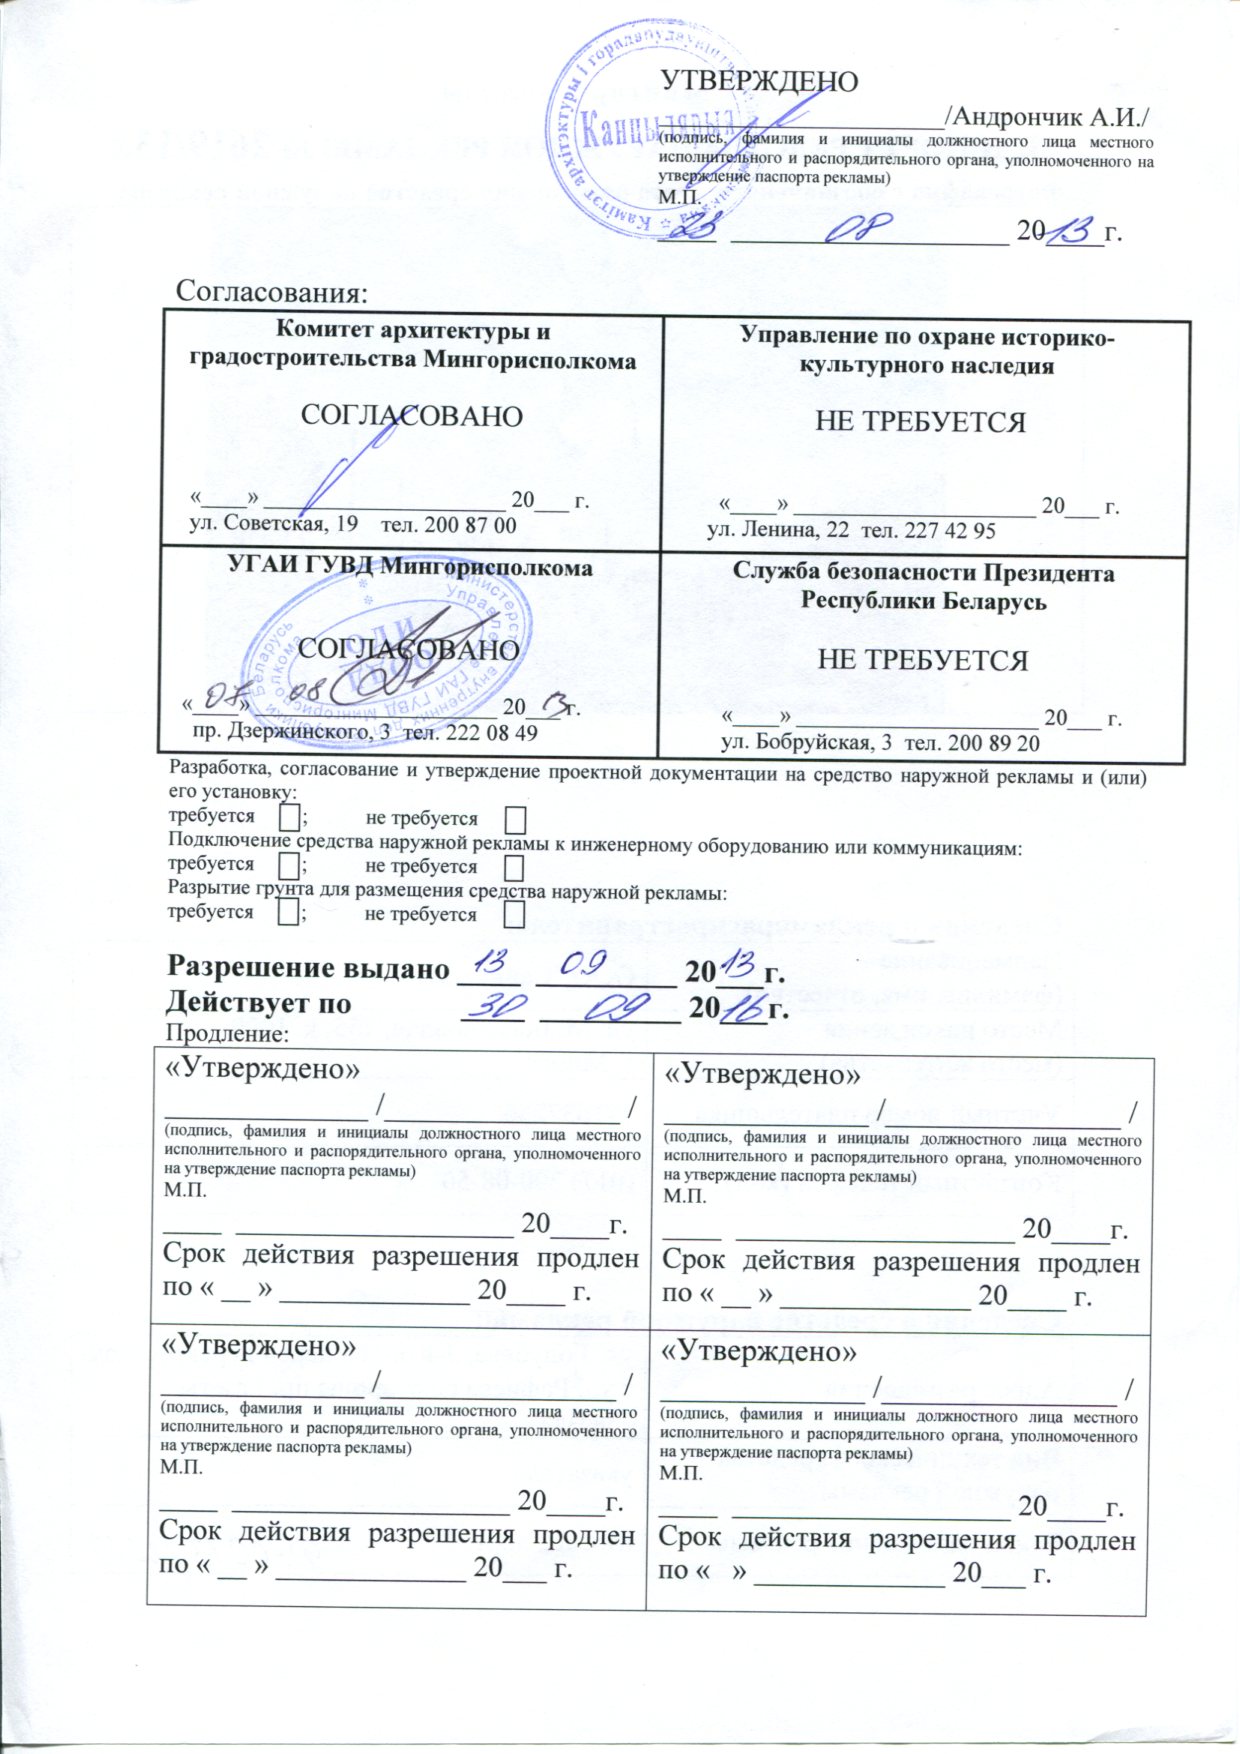 УТВЕРЖДЕНО
____________________/Андрончик А.И./
(подпись, фамилия и инициалы должностного лица местного
исполнительного и распорядительного органа, уполномоченного на
утверждение паспорта рекламы)
М.П.
23 08 2013 г.
Камітэт архітэктуры і горадабудаўніцтва
Канцылярыя
Согласования:
Комитет архитектуры и
градостроительства Мингорисполкома
СОГЛАСОВАНО
«____» ____________________ 20___ г.
ул. Советская, 19 тел. 200 87 00
Управление по охране историко-
культурного наследия
НЕ ТРЕБУЕТСЯ
«____» ____________________ 20___ г.
ул. Ленина, 22 тел. 227 42 95
УГАИ ГУВД Мингорисполкома
СОГЛАСОВАНО
«08» 08 2013 г.
пр. Дзержинского, 3 тел. 222 08 49
Служба безопасности Президента
Республики Беларусь
НЕ ТРЕБУЕТСЯ
«____» ____________________ 20___ г.
ул. Бобруйская, 3 тел. 200 89 20
Разработка, согласование и утверждение проектной документации на средство наружной рекламы и (или)
его установку:
требуется ; не требуется
Подключение средства наружной рекламы к инженерному оборудованию или коммуникациям:
требуется ; не требуется
Разрытие грунта для размещения средства наружной рекламы:
требуется ; не требуется
Разрешение выдано 13 09 2013 г.
Действует по 30 09 2016 г.
Продление:
«Утверждено»
______________ /________________ /
(подпись, фамилия и инициалы должностного лица местного
исполнительного и распорядительного органа, уполномоченного
на утверждение паспорта рекламы)
М.П.
____ ___________________ 20____г.
Срок действия разрешения продлен
по « __ » _____________ 20____ г.
«Утверждено»
______________ /________________ /
(подпись, фамилия и инициалы должностного лица местного
исполнительного и распорядительного органа, уполномоченного
на утверждение паспорта рекламы)
М.П.
____ ___________________ 20____г.
Срок действия разрешения продлен
по « __ » _____________ 20____ г.
«Утверждено»
______________ /________________ /
(подпись, фамилия и инициалы должностного лица местного
исполнительного и распорядительного органа, уполномоченного
на утверждение паспорта рекламы)
М.П.
____ ___________________ 20____г.
Срок действия разрешения продлен
по « __ » _____________ 20___ г.
«Утверждено»
______________ /________________ /
(подпись, фамилия и инициалы должностного лица местного
исполнительного и распорядительного органа, уполномоченного
на утверждение паспорта рекламы)
М.П.
____ ___________________ 20____г.
Срок действия разрешения продлен
по « » _____________ 20___ г.